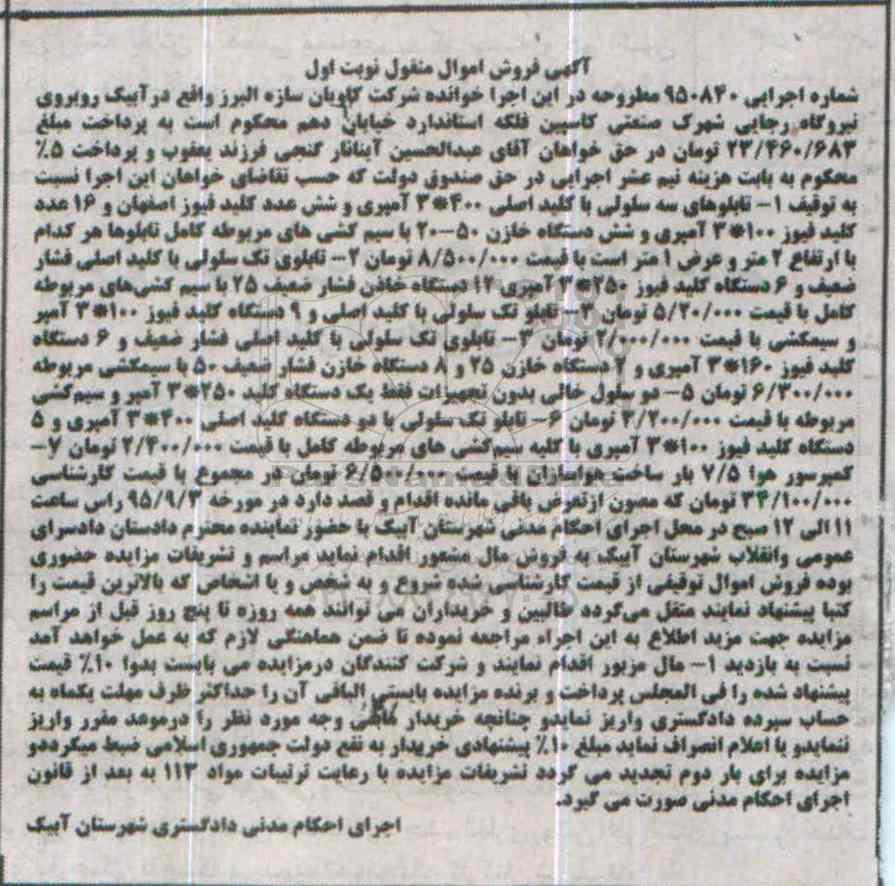 آگهی فروش اموال منقول نوبت اول
شماره اجرایی ۹۵۰۸۴۰ مطروحه در این اجرا خوانده شرکت کاویان سازه البرز واقع در آبیک روبروی
نیروگاه رجایی شهرک صنعتی کاسپین فلکه استاندارد خیابان دهم محکوم است به پرداخت مبلغ
۲۳/۴۶۰/۶۸۳ تومان در حق خواهان آقای عبدالحسین آیناثار گنجی فرزند یعقوب و پرداخت ۵٪
محکوم به بابت هزینه نیم عشر اجرایی در حق صندوق دولت که حسب تقاضای خواهان این اجرا نسبت
به توقیف ۱- تابلوهای سه سلولی با کلید اصلی ۴۰۰*۳ آمپری و شش عدد کلید فیوز اصفهان و ۱۶ عدد
کلید فیوز ۱۰۰*۳ آمپری و شش دستگاه خازن ۵۰-۲۰ با سیم کشی های مربوطه کامل تابلوها هر کدام
با ارتفاع ۲ متر و عرض ۱ متر است با قیمت ۸/۵۰۰/۰۰۰ تومان ۲- تابلوی تک سلولی با کلید اصلی فشار
ضعیف و ۶ دستگاه کلید فیوز ۲۵۰*۳ آمپری ۱۲ دستگاه خافن فشار ضعیف ۲۵ با سیم کشی‌های مربوطه
کامل با قیمت ۵/۲۰/۰۰۰ تومان ۳- تابلو تک سلولی با کلید اصلی و ۹ دستگاه کلید فیوز ۱۰۰*۳ آمپر
و سیمکشی با قیمت ۲/۰۰۰/۰۰۰ تومان ۳- تابلوی تک سلولی با کلید اصلی فشار ضعیف و ۶ دستگاه
کلید فیوز ۱۶۰*۳ آمپری و ۲ دستگاه خازن ۲۵ و ۸ دستگاه خازن فشار ضعیف ۵۰ با سیمکشی مربوطه
۶/۳۰۰/۰۰۰ تومان ۵- دو سلول خالی بدون تجهیزات فقط یک دستگاه کلید ۲۵۰*۳ آمپر و سیم‌کشی
مربوطه با قیمت ۳/۲۰۰/۰۰۰ تومان ۶- تابلو تک سلولی با دو دستگاه کلید اصلی ۴۰۰*۳ آمپری و ۵
دستگاه کلید فیوز ۱۰۰*۳ آمپری با کلیه سیم‌کشی های مربوطه کامل با قیمت ۲/۴۰۰/۰۰۰ تومان ۷-
کمپرسور هوا ۷/۵ بار ساخت هواسازان با قیمت ۶/۵۰۰/۰۰۰ تومان در مجموع با قیمت کارشناسی
۳۴/۱۰۰/۰۰۰ تومان که مصون ازتعرض باقی مانده اقدام و قصد دارد در مورخه ۹۵/۹/۳ راس ساعت
۱۱ الی ۱۲ صبح در محل اجرای احکام مدنی شهرستان آبیک با حضور نماینده محترم دادستان دادسرای
عمومی وانقلاب شهرستان آبیک به فروش مال مشعور اقدام نماید مراسم و تشریفات مزایده حضوری
بوده فروش اموال توقیفی از قیمت کارشناسی شده شروع و به شخص و یا اشخاص که بالاترین قیمت را
کتبا پیشنهاد نمایند منتقل می‌گردد طالبین و خریداران می توانند همه روزه تا پنج روز قبل از مراسم
مزایده جهت مزید اطلاع به این اجراء مراجعه نموده تا ضمن هماهنگی لازم که به عمل خواهد آمد
نسبت به بازدید ۱- مال مزبور اقدام نمایند و شرکت کنندگان درمزایده می بایست بدوا ۱۰٪ قیمت
پیشنهاد شده را فی المجلس پرداخت و برنده مزایده بایستی الباقی آن را حداکثر ظرف مهلت یکماه به
حساب سپرده دادگستری واریز نمایدو چنانچه خریدار گاهی وجه مورد نظر را درموعد مقرر واریز
ننمایدو یا اعلام انصراف نماید مبلغ ۱۰٪ پیشنهادی خریدار به نفع دولت جمهوری اسلامی ضبط میگرددو
مزایده برای بار دوم تجدید می گردد تشریفات مزایده با رعایت ترتیبات مواد ۱۱۳ به بعد از قانون
اجرای احکام مدنی صورت می گیرد.
اجرای احکام مدنی دادگستری شهرستان آبیک